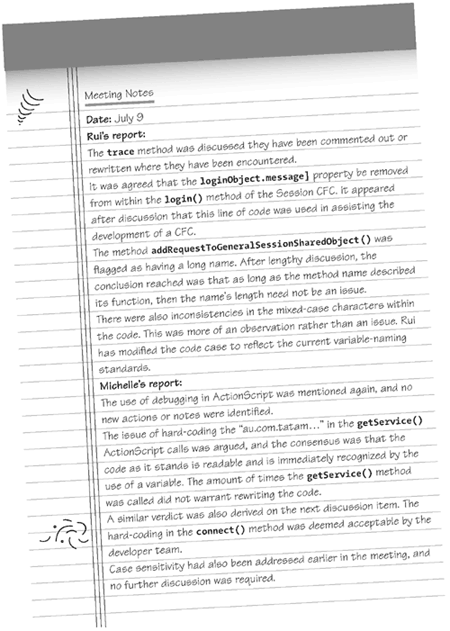 Meeting Notes
Date: July 9
Rui's report:
The trace method was discussed they have been commented out or
rewritten where they have been encountered.
It was agreed that the loginObject.message] property be removed
from within the login() method of the Session CFC. It appeared
after discussion that this line of code was used in assisting the
development of a CFC.
The method addRequestToGeneralSessionSharedObject() was
flagged as having a long name. After lengthy discussion, the
conclusion reached was that as long as the method name described
its function, then the name's length need not be an issue.
There were also inconsistencies in the mixed-case characters within
the code. This was more of an observation rather than an issue. Rui
has modified the code case to reflect the current variable-naming
standards.
Michelle's report:
The use of debugging in ActionScript was mentioned again, and no
new actions or notes were identified.
The issue of hard-coding the "au.com.tatam..." in the getService()
ActionScript calls was argued, and the consensus was that the
code as it stands is readable and is immediately recognized by the
use of a variable. The amount of times the getService() method
was called did not warrant rewriting the code.
A similar verdict was also derived on the next discussion item. The
hard-coding in the connect() method was deemed acceptable by the
developer team.
Case sensitivity had also been addressed earlier in the meeting, and
no further discussion was required.